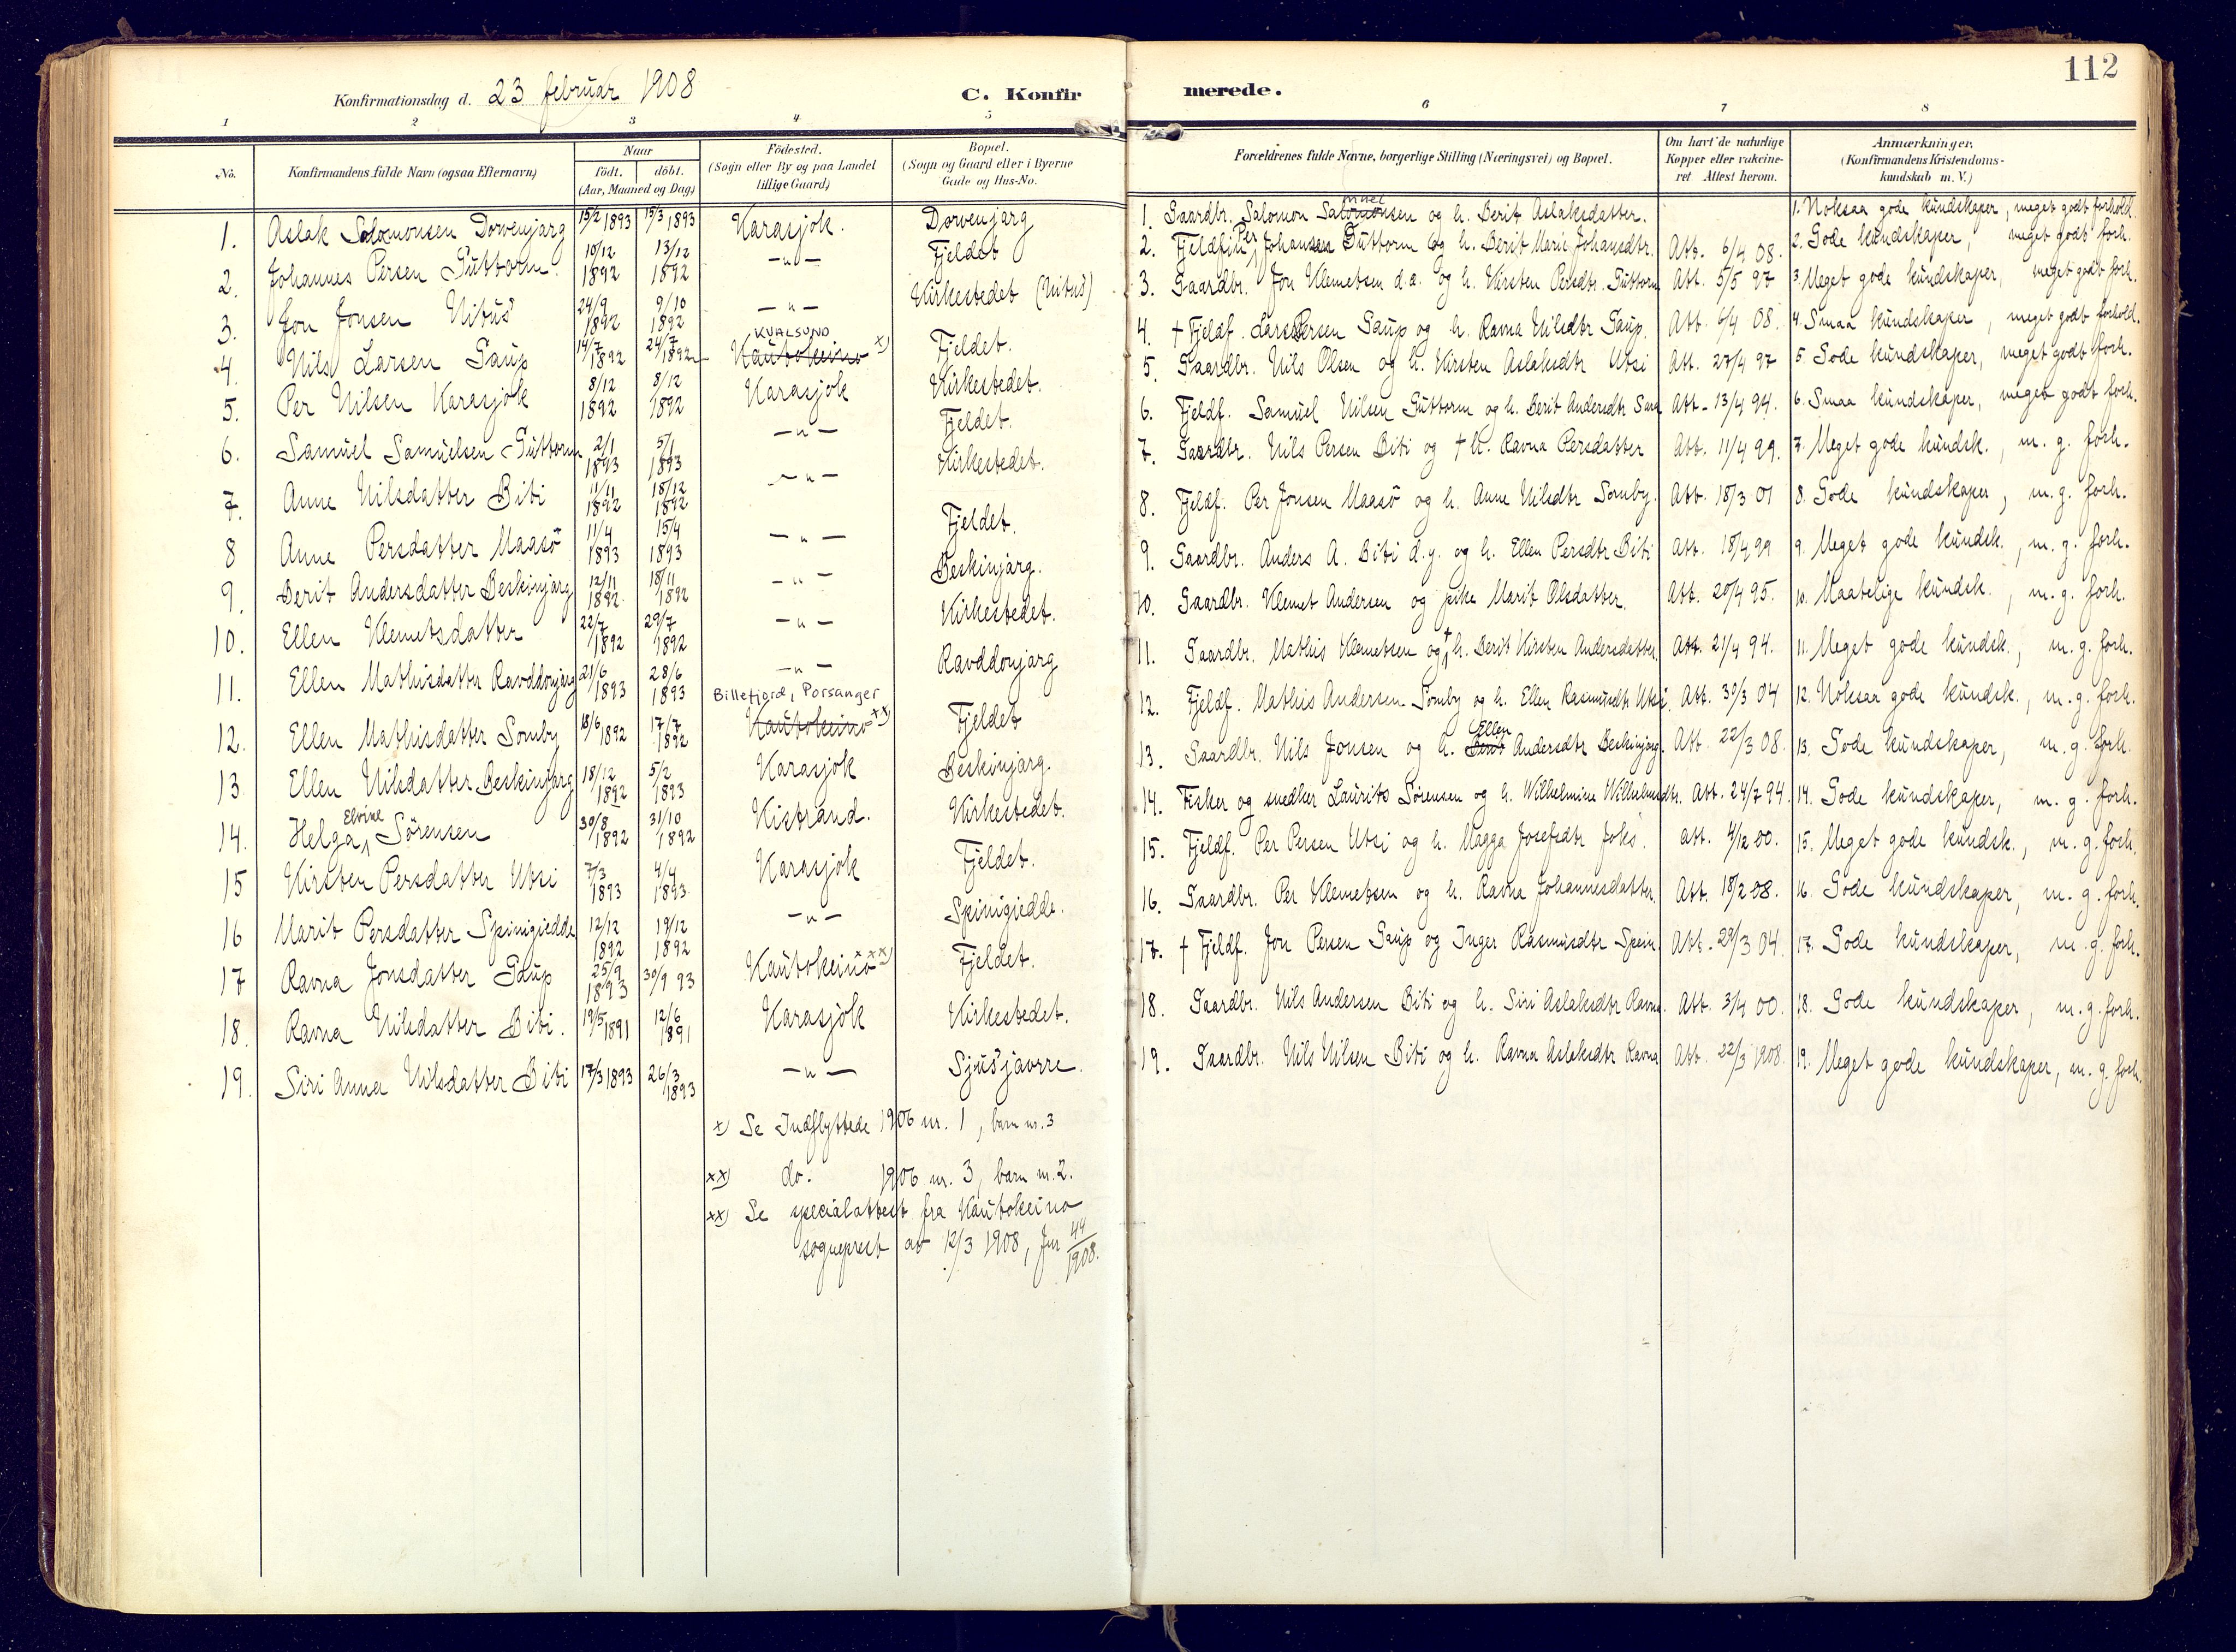 112
Konfirmationsdag d. 23 februar 1908
C. Konfirmerede.
1 2 3 4 5 6 7 8
No.
Konfirmandens fulde Navn (ogsaa Efternavn)
Naar
födt. döbt.
(Aar, Maaned og Dag)
Födested.
(Sogn eller By og paa Landet
tillige Gaard)
Bopæl.
(Sogn og Gaard eller i Byerne
Gade og Hus-No.
Forældrenes fulde Navne, borgerlige Stilling (Næringsvei) og Bopæl.
Om havt de naturlige
Kopper eller vakcine-
ret Attest herom.
Anmærkninger.
(Konfirmandens Kristendoms-
kundskab m. V.)
1. Aslak Salomonsen Dorvenjarg 15/2 1893 15/3 1893 Karasjok. Dorvenjarg
2. Johannes Persen Guttorm. 10/12 1892 13/12 1892 -"- Fjeldet
3. Jon Jonsen Nitus 24/9 1892 9/10 1892 -"- Kirkestedet (Nitus)
KVALSUND
4. Nils Larsen Gaup 14/7 1892 24/7 1892 Kautokeino x) Fjeldet.
5. Per Nilsen Karasjok 8/12 1892 8/12 1892 Karasjok Kirkestedet.
6. Samuel Samuelsen Guttorm 2/1 1893 5/1 1893 -"- Fjeldet.
7. Anne Nilsdatter Biti 11/11 1892 18/12 1892 -"- Kirkestedet.
8 Anne Persdatter Maasö 11/4 1893 15/4 1893 -"- Fjeldet.
9. Berit Andersdatter Beskinjarg 12/11 1892. 18/11 1892 -"- Beskinjarg.
10. Ellen Klemetsdatter 22/7 1892 29/7 1892 -"- Kirkestedet.
11. Ellen Mathisdatter Ravddonjarg 21/6 1893 28/6 1893 -"- Ravddonjarg
Billefjord, Porsanger
12. Ellen Mathisdatter Somby 18/6 1892 17/7 1892 Kautokeino xx) Fjeldet
13 Ellen Nilsdatter Beskinjarg 18/12 1892 5/2 1893 Karasjok Beskinjarg.
Elvine
14. Helga Sörensen 30/8 1892 31/10 1892 Kistrand. Kirkestedet.
15 Kirsten Persdatter Utsi 7/3 1893 4/4 1893 Karasjok Fjeldet.
16 Marit Persdatter Spinigiedde 12/12 1892 19/12 1892 -"- Spinigiedde.
17 Ravna Jonsdatter Gaup 25/9 1893 30/9 93 Kautokeino xxx) Fjeldet.
18. Ravna Nilsdatter Biti. 19/5 1891 12/6 1891 Karasjok Kirkestedet.
19. Siri Anna Nilsdatter Biti 17/3 1893 26/3 1893 -"- Sjusjavrre.
x) Se Indflyttede 1906 nr. 1, barn nr. 3
xx) do. 1906 nr. 3, barn nr. 2.
xx) Se specialattest fra Kautokeino
sogneprest av 12/3 1908, Jnr 44/1908.
1. Gaardbr. Salomon Salomonsen og h. Berit Aslaksdatter. 1. Noksaa gode kundskaper, meget godt forhold.
2. Fjeldfin Per Johansen Guttorm og h. Berit Marie Johansdtr. Att. 6/4 08. 2. Gode kundskaper, meget godt forh.
3. Gaardbr. Jon Klemetsen d.æ. og h. Kirsten Persdtr. Guttorm Att. 5/5 97 3. Meget gode kundskaper, meget godt forh.
4. † Fjeldf. Lars Persen Gaup og h. Ravna Nilsdtr Gaup. Att. 6/4 08. 4. Smaa kundskaper, meget godt forhold.
5. Gaardbr. Nils Olsen og h. Kirsten Aslaksdtr Utsi Att. 27/4 97 5. Gode kundskaper, meget godt forh.
6. Fjeldf. Samuel Nilsen Guttorm og h. Berit Andersdtr Sara Att. 13/4 94. 6. Smaa kundskaper, meget godt forh.
7. Gaardbr. Nils Persen Biti og † h. Ravna Persdatter Att. 11/4 99. 7. Meget gode kundsk., m. g. forh.
8. Fjeldf. Per Jonsen Maasö og h. Anne Nilsdtr Somby. Att. 18/3 01 8. Gode kundskaper, m. g. forh.
9. Gaardbr. Anders A. Biti d.y. og h. Ellen Persdtr Biti Att. 18/4 99 9. Meget gode kundsk., m. g. forh.
10. Gaardbr. Klemet Andersen og pike Marit Olsdatter. Att. 20/4 95. 10. Maatelige kundsk., m. g. forh.
11. Gaardbr. Mathis Klemetsen og † h. Berit Kirsten Andersdatter. Att. 21/4 94. 11. Meget gode kundsk., m. g. forh.
12. Fjeldf. Mathis Andersen Somby og h. Ellen Rasmusdtr Utsi. Att. 30/3 04 12. Noksaa gode kundsk., m. g. forh.
13. Gaardbr. Nils Jonsen og h. Berit Ellen Andersdtr Beskinjarg. Att. 22/3 08. 13. Gode kundskaper, m. g. forh.
14. Fisker og snedker Laurits Sörensen og h. Wilhelmine Wilhelmsdtr. Att. 24/7 94. 14. Gode kundskaper, m. g. forh.
15. Fjeldf. Per Persen Utsi og h. Magga Josefsdtr Joks. att. 4/12 00. 15. Meget gode kundsk., m. g. forh.
16. Gaardbr. Per Klemetsen og h. Ravna Johannesdatter. Att. 18/2 08. 16. Gode kundskaper, m. g. forh.
17. † Fjeldf. Jon Persen Gaup og Inger Rasmusdtr Spein. Att. 29/3 04. 17. Gode kundskaper, m. g. forh.
18. Gaardbr. Nils Andersen Biti og h. Siri Aslaksdtr Ravna. Att. 3/4 00. 18. Gode kundskaper, m. g. forh.
19. Gaardbr. Nils Nilsen Biti og h. Ravna Aslaksdtr Ravna Att. 22/3 1908. 19. Meget gode kundskaper, m. g. forh.